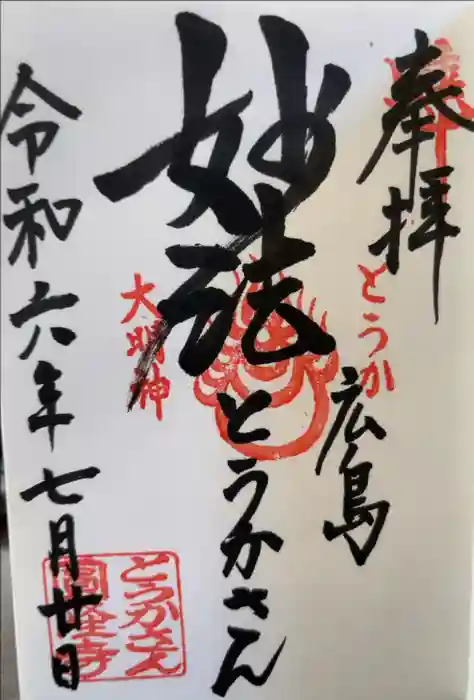 奉拝
とうか
広島
妙法
とうかさん
大明神
令和六年七月廿日
とうかさん
圓隆寺